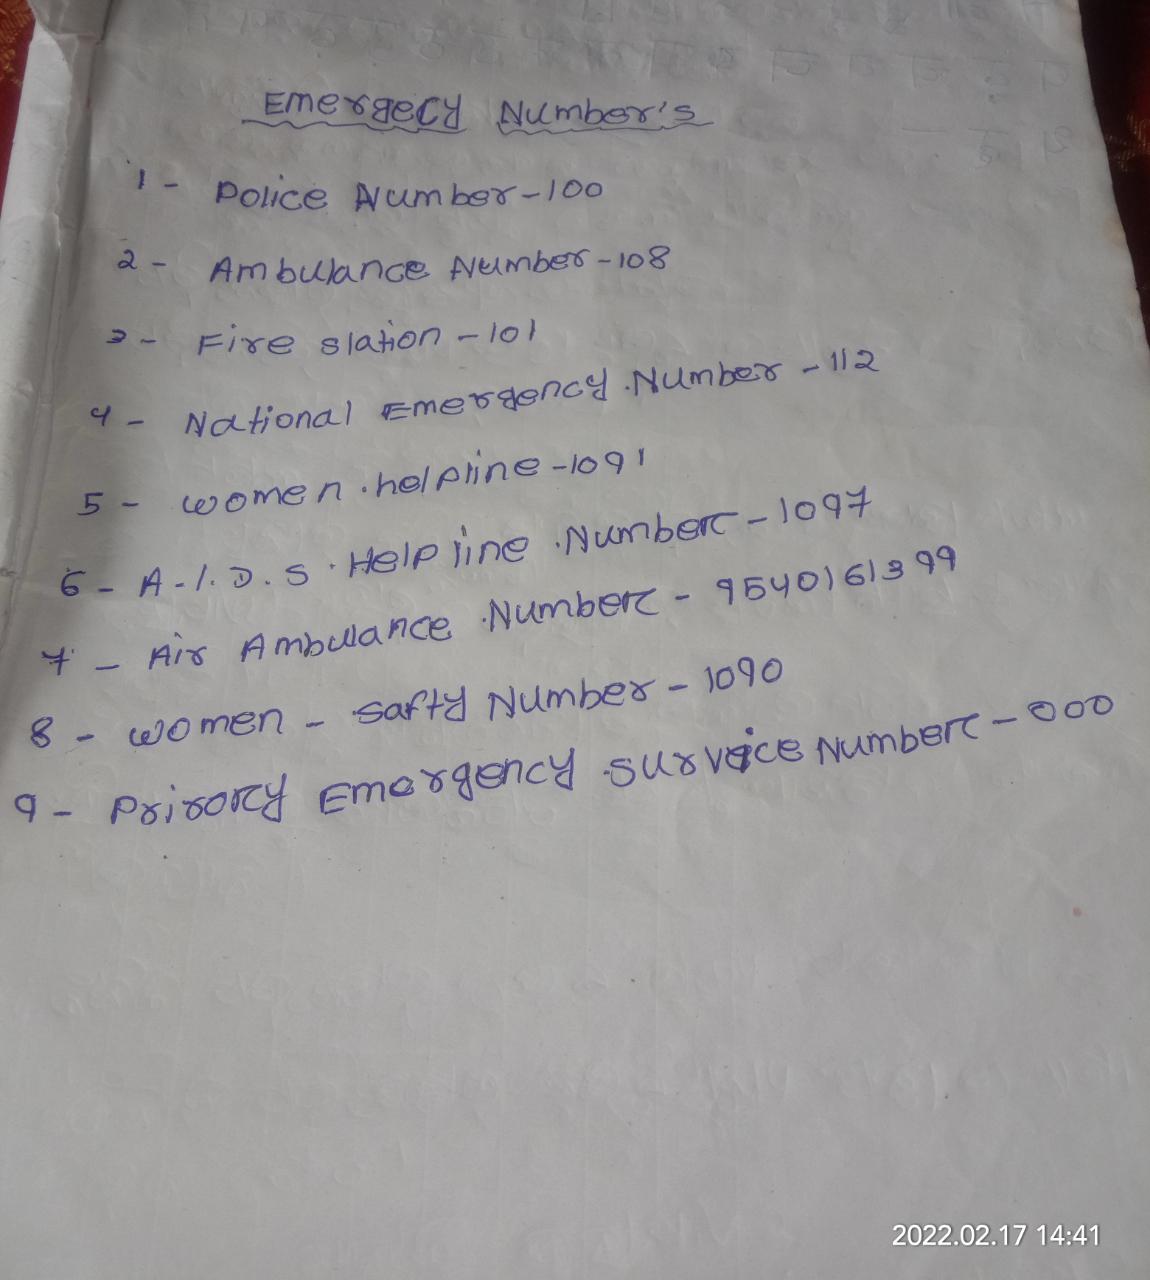 Emergecy Number's
1 - Police Number - 100
2 - Ambulance Number - 108
3 - Fire station - 101
4 - National Emergency Number - 112
5 - women helpline - 1091
6 - A.I.D.S. Helpline Number - 1097
7 - Air Ambulance Number - 9540161399
8 - women - safty Number - 1090
9 - Prirory Emergency survice Number - 000
2022.02.17 14:41